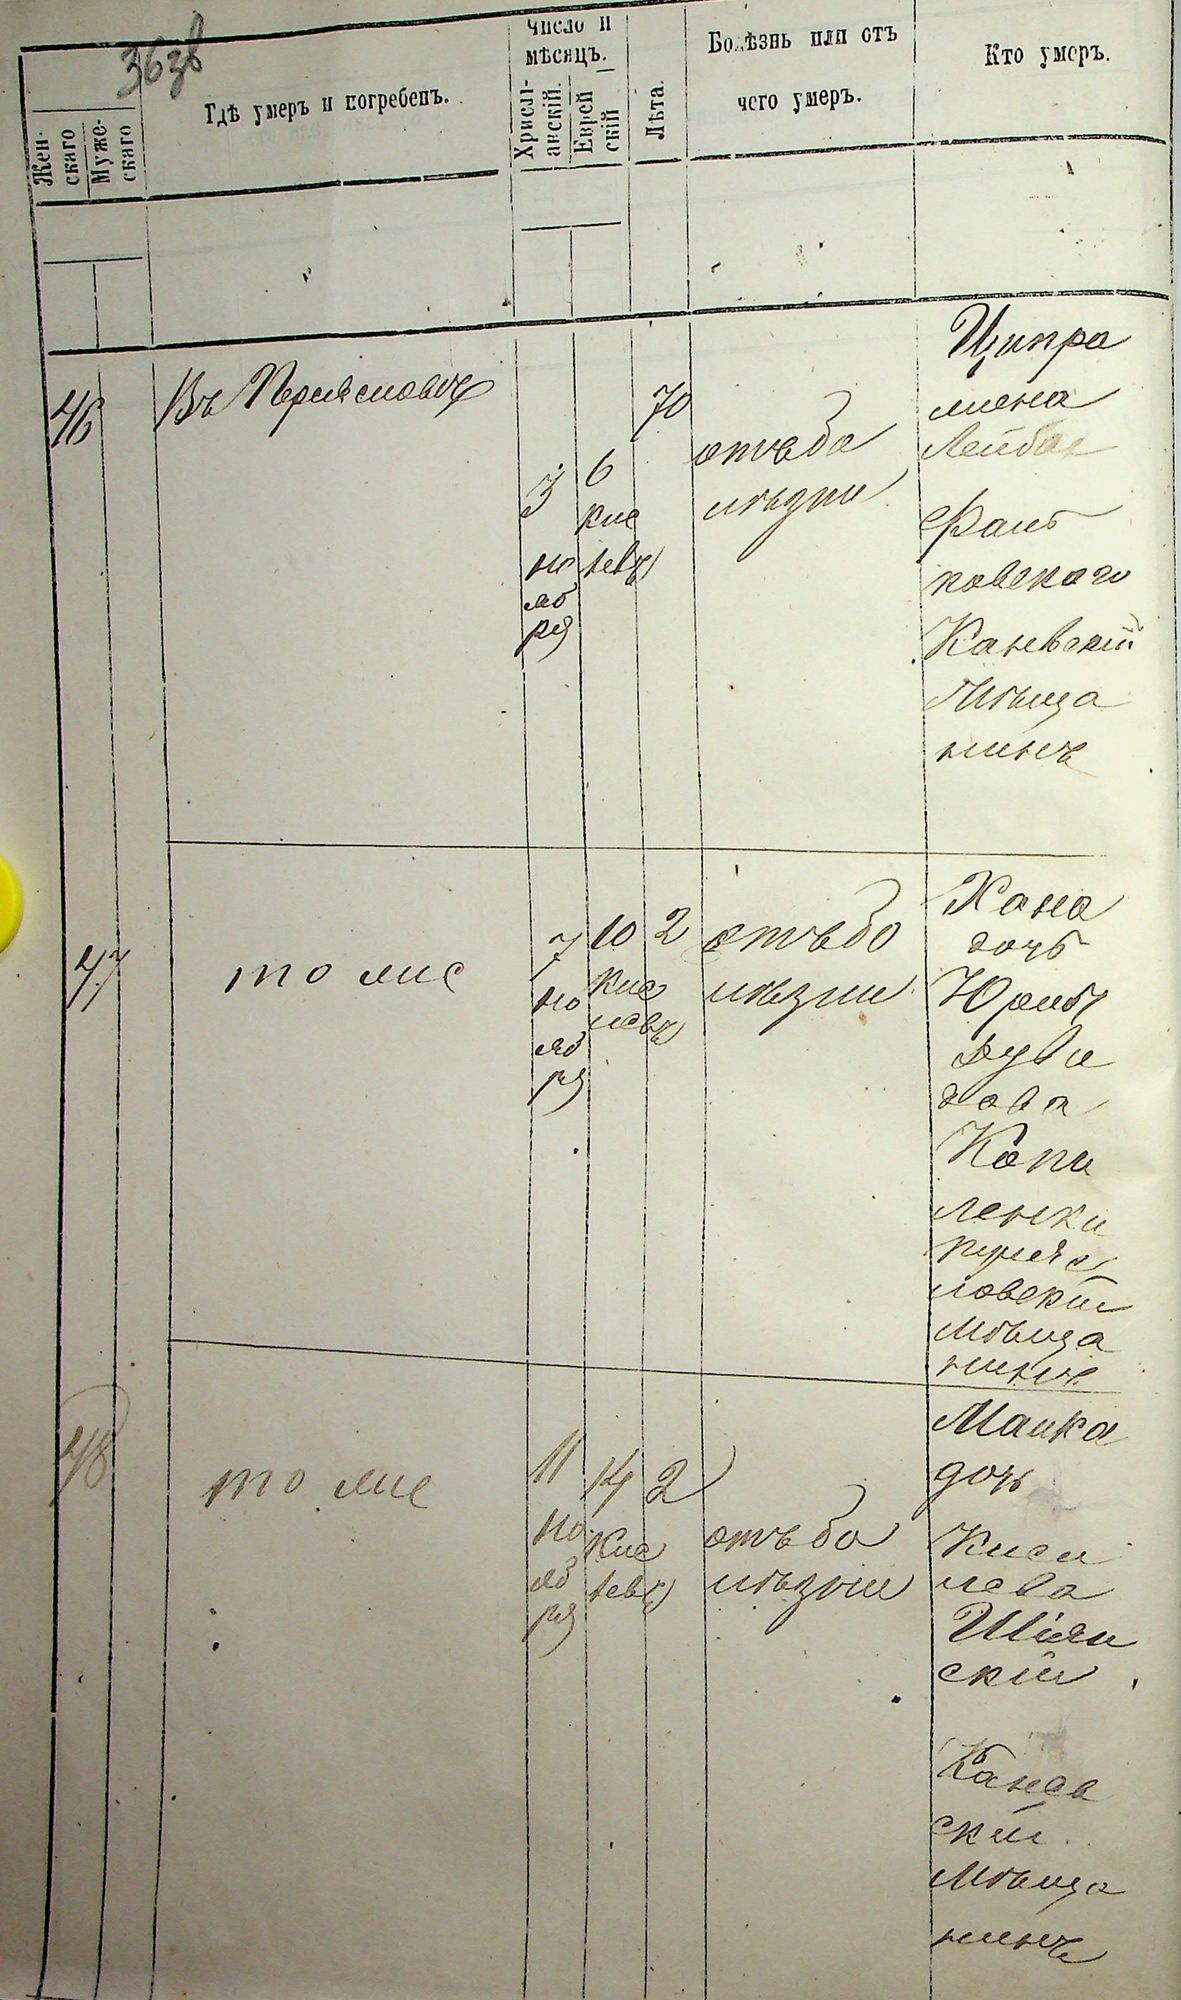 363в
Жен-
скаго
Муже-
скаго
Гдѣ умеръ и погребенъ.
Число и
мѣсяцъ.
Христі-
анскій.
Еврей
скій
Лѣта.
Болѣзнь или отъ
чего умеръ.
Кто умеръ.
46
Въ Переяславѣ
3
но
яб
ря
6
кис
левъ
70
отъ бо
лѣзни
Ципра
жена
Лейбы
Фаль
ковскаго
Каневскій
Мѣща
нинъ
47
то же
7
но
яб
ря
10
кис
левъ
2
отъ бо
лѣзни
Хана
дочь
Дуви
дова
Копи
ленки
переяс
лавскій
мѣща
нинъ
48
то же
11
но
яб
ря
14
кис
левъ
2
отъ бо
лѣзни
Малка
дочь
Киси
лева
скій
Канев
скій
мѣща
нинъ